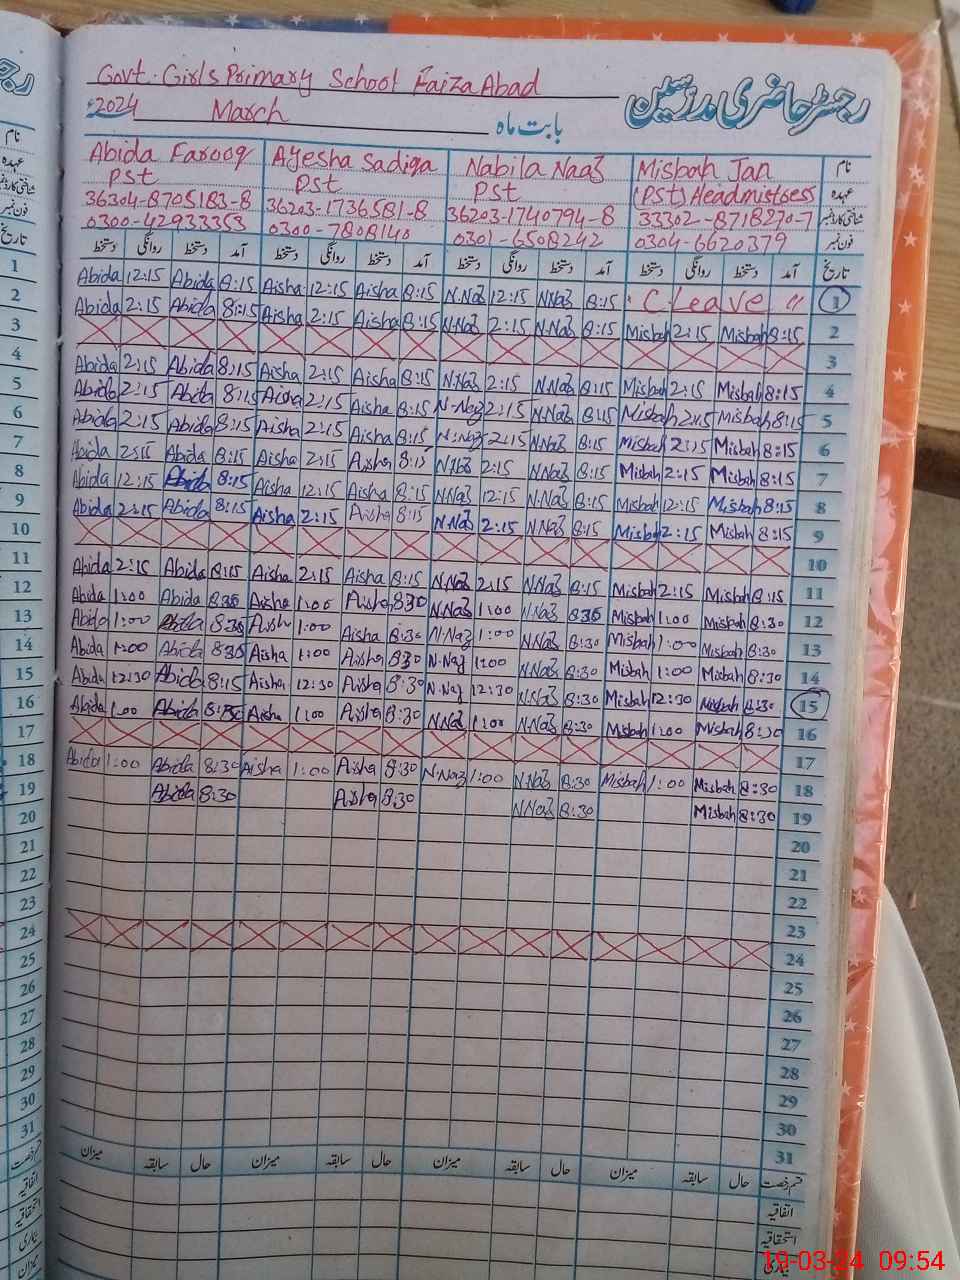 Govt. Girls Primary School Faiza Abad
رجسٹر حاضری مدرسین
2024 March بابت ماہ
Abida Farooq Ayesha Sadiqa Nabila Naaz Misbah Jan نام
Pst Pst Pst (Pst) Headmistsess عہدہ
36304-8705183-8 36203-1736581-8 36203-1740794-8 33302-8718270-7 شناختی کارڈ نمبر
0300-42933353 0300-7808140 0301-6508242 0304-6620379 فون نمبر
دستخط روانگی دستخط آمد دستخط روانگی دستخط آمد دستخط روانگی دستخط آمد دستخط روانگی دستخط آمد تاریخ
Abida 12:15 Abida 8:15 Aisha 12:15 Aisha 8:15 N.Naz 12:15 N.Naz 8:15 C Leave " 1
Abida 2:15 Abida 8:15 Aisha 2:15 Aisha 8:15 N.Naz 2:15 N.Naz 8:15 Misbah 2:15 Misbah 8:15 2
3
Abida 2:15 Abida 8:15 Aisha 2:15 Aisha 8:15 N.Naz 2:15 N.Naz 8:15 Misbah 2:15 Misbah 8:15 4
Abida 2:15 Abida 8:15 Aisha 2:15 Aisha 8:15 N.Naz 2:15 N.Naz 8:15 Misbah 2:15 Misbah 8:15 5
Abida 2:15 Abida 8:15 Aisha 2:15 Aisha 8:15 N.Naz 2:15 N.Naz 8:15 Misbah 2:15 Misbah 8:15 6
Abida 2:15 Abida 8:15 Aisha 2:15 Aisha 8:15 N.Naz 2:15 N.Naz 8:15 Misbah 2:15 Misbah 8:15 7
Abida 12:15 Abida 8:15 Aisha 12:15 Aisha 8:15 N.Naz 12:15 N.Naz 8:15 Misbah 12:15 Misbah 8:15 8
Abida 2:15 Abida 8:15 Aisha 2:15 Aisha 8:15 N.Naz 2:15 N.Naz 8:15 Misbah 2:15 Misbah 8:15 9
10
Abida 2:15 Abida 8:15 Aisha 2:15 Aisha 8:15 N.Naz 2:15 N.Naz 8:15 Misbah 2:15 Misbah 8:15 11
Abida 1:00 Abida 8:30 Aisha 1:00 Aisha 8:30 N.Naz 1:00 N.Naz 8:30 Misbah 1:00 Misbah 8:30 12
Abida 1:00 Abida 8:30 Aisha 1:00 Aisha 8:30 N.Naz 1:00 N.Naz 8:30 Misbah 1:00 Misbah 8:30 13
Abida 1:00 Abida 8:30 Aisha 1:00 Aisha 8:30 N.Naz 1:00 N.Naz 8:30 Misbah 1:00 Misbah 8:30 14
Abida 12:30 Abida 8:15 Aisha 12:30 Aisha 8:30 N.Naz 12:30 N.Naz 8:30 Misbah 12:30 Misbah 8:30 15
Abida 1:00 Abida 8:30 Aisha 1:00 Aisha 8:30 N.Naz 1:00 N.Naz 8:30 Misbah 1:00 Misbah 8:30 16
17
Abida 1:00 Abida 8:30 Aisha 1:00 Aisha 8:30 N.Naz 1:00 N.Naz 8:30 Misbah 1:00 Misbah 8:30 18
Abida 8:30 Aisha 8:30 N.Naz 8:30 Misbah 8:30 19
20
21
22
23
24
25
26
27
28
29
30
31
میزان سابقہ حال میزان سابقہ حال میزان سابقہ حال میزان سابقہ حال قسم رخصت
اتفاقیہ
استحقاقیہ
بیماری
19-03-24 09:54